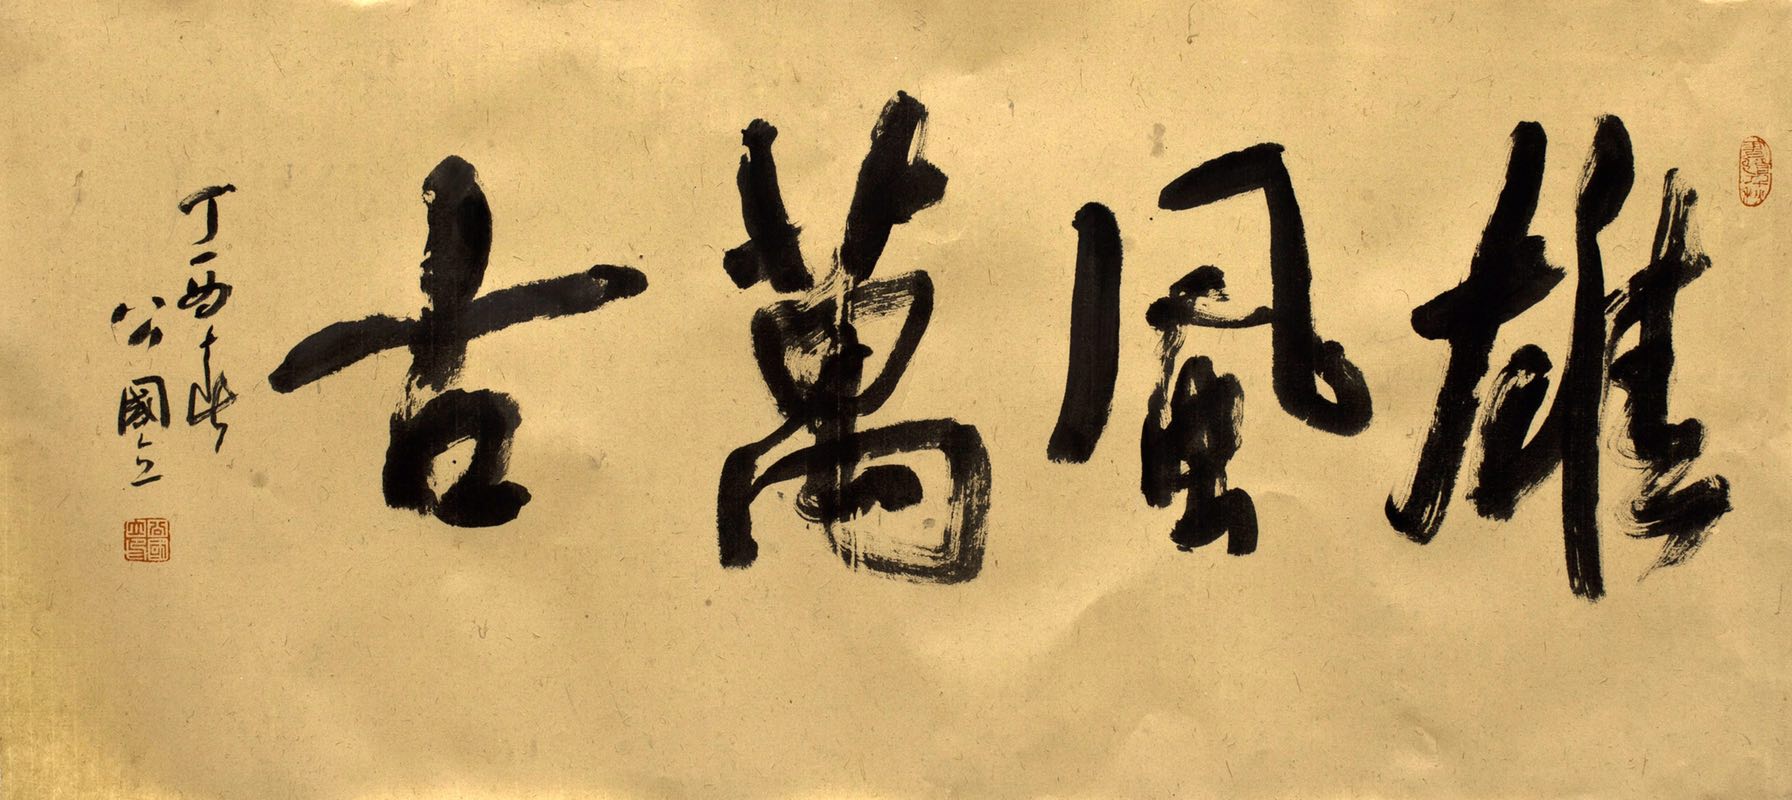 雄風萬古
丁酉春
公國立